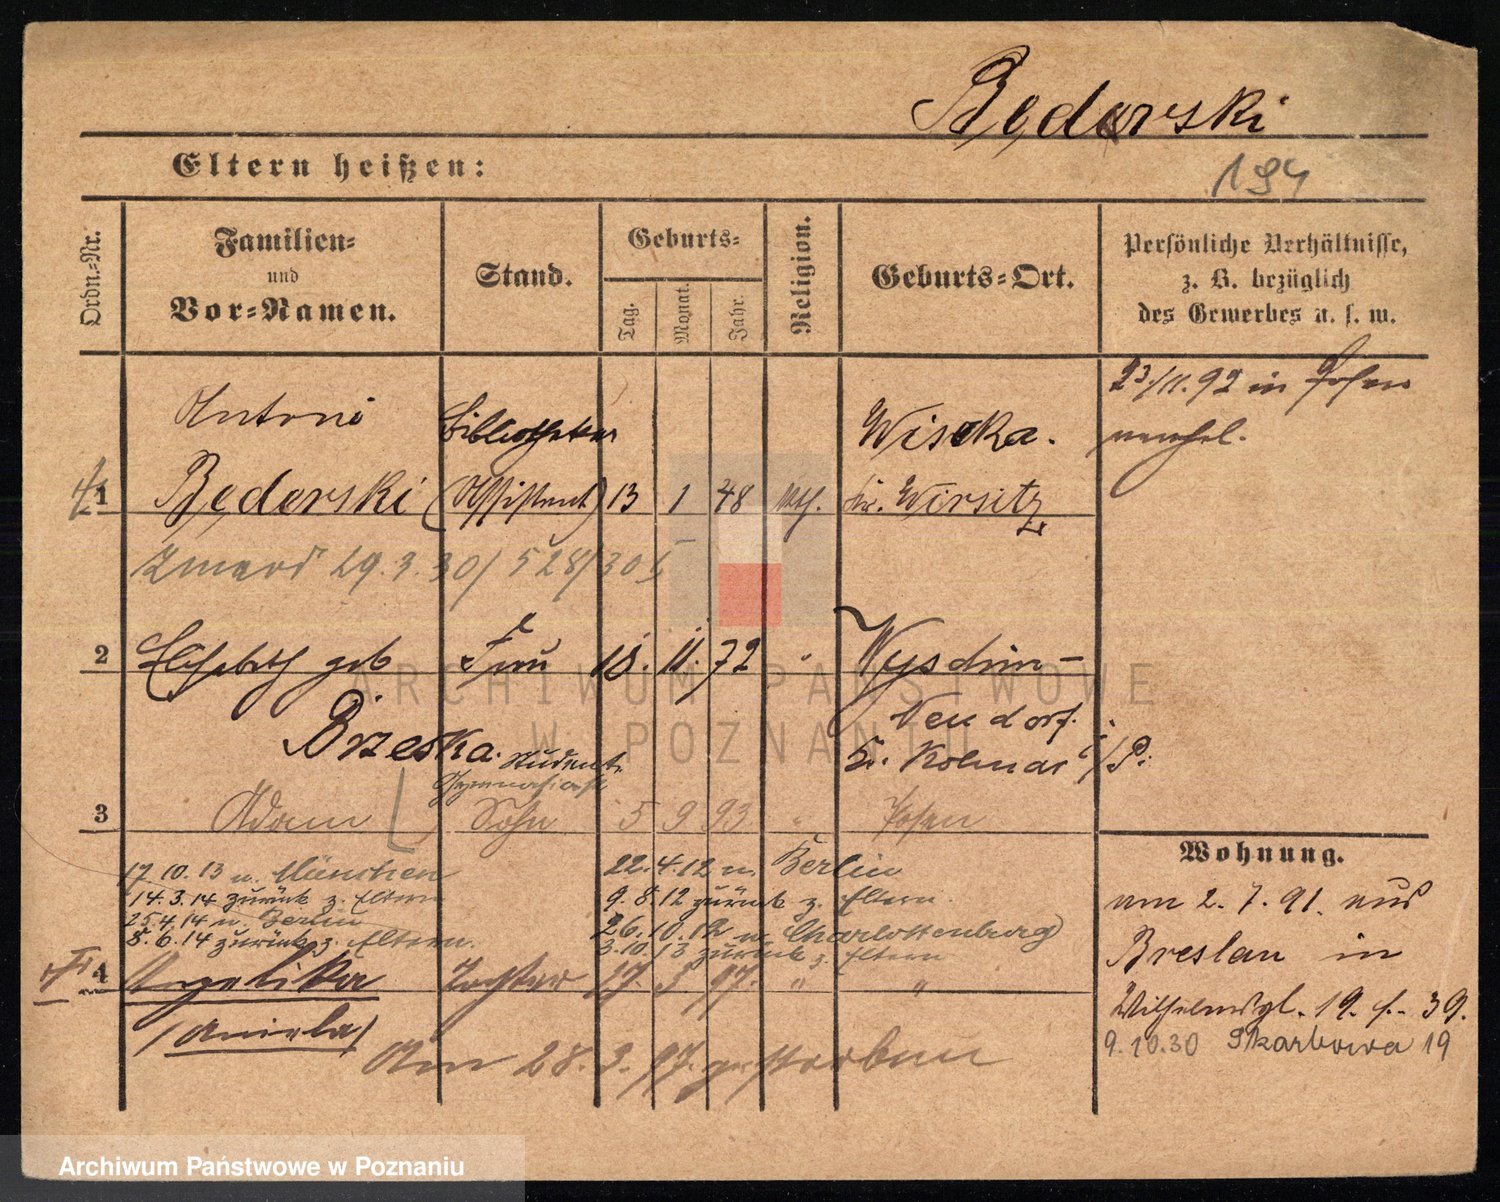 Bederski
Eltern heißen:
194
Ordn.-Nr.
Familien-
und
Vor-Namen.
Stand.
Geburts-
Tag.
Monat.
Jahr.
Religion.
Geburts-Ort.
Persönliche Verhältnisse,
z. B. bezüglich
des Gewerbes u. s. w.
23/11.92 in Posen
Antoni Bibliothekar Wiseka.
1 Bederski (Assistent) 13 1 48 kth. Kr. Wirsitz
Zmarł 29.3.30/528/30
2 Elisabeth geb Frau 18. 11. 72 " Wyschin-
Brzeska. Neudorf.
Student Kr. Kolmar i/P.
Gymnasiast
3 Adam Sohn 5 9 93 " Posen
17.10.13 n. München
14.3.14 zurück z. Eltern
25.4.14 n. Berlin
8.6.14 zurück z. Eltern.
22.4.12 n. Berlin
9.8.12 zurück z. Eltern.
26.10.12 n. Charlottenburg
3.10.13 zurück z. Eltern
4 Angelika Tochter 17. 3. 97. " "
(Aniela)
Am 28.3.97. gestorben
Wohnung.
am 2.7.91. aus
Breslau in
Wilhelmspl. 19. 39.
9.10.30 Skarbowa 19
ARCHIWUM PAŃSTWOWE
W POZNANIU
Archiwum Państwowe w Poznaniu